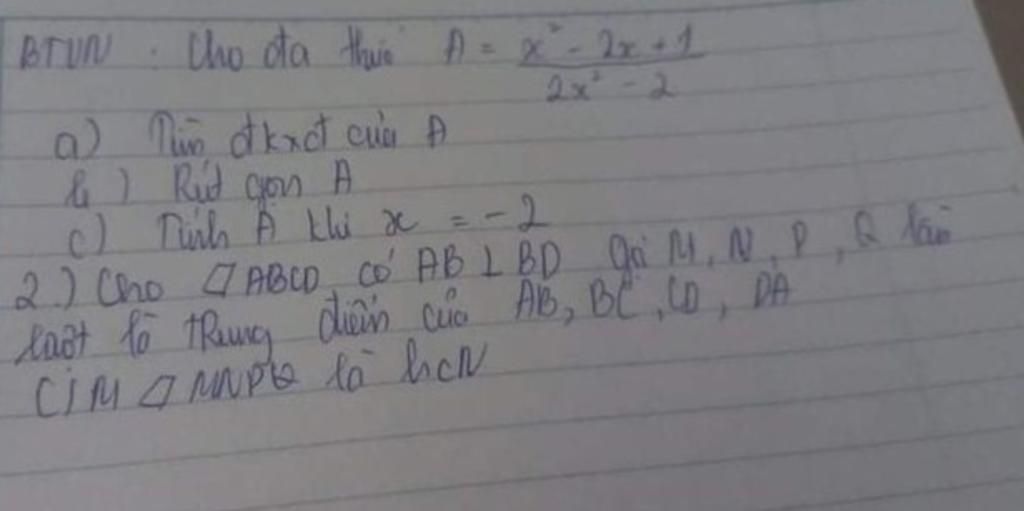 BTVN : Cho đa thức A = \frac{x² - 2x + 1}{2x² - 2}
a) Tìm đkxđ của A
b) Rút gọn A
c) Tính A khi x = -2
2.) Cho ▱ABCD có AB ⊥ BD gọi M, N, P, Q lần
lượt là trung điểm của AB, BC, CD, DA
C/M ▱ MNPQ là hcN